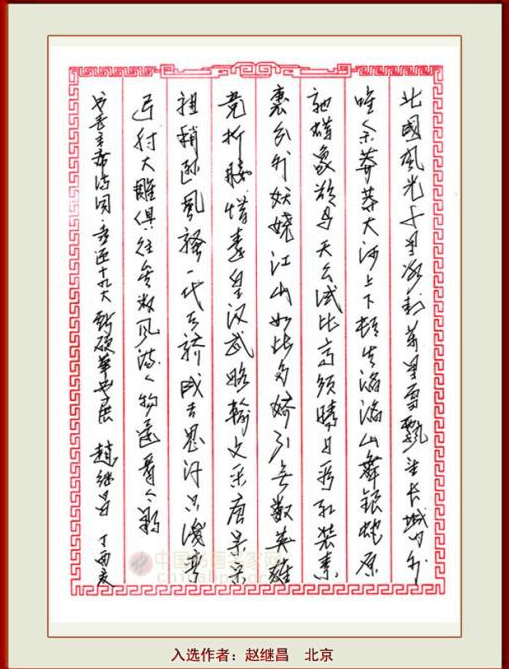 北國風光千里冰封萬里雪飄望長城内外
唯余莽莽大河上下頓失滔滔山舞銀蛇原
馳蠟象欲与天公试比高须晴日看红装素
裹分外妖娆江山如此多娇引无数英雄
竞折腰惜秦皇汉武略输文采唐宗宋
祖稍逊风骚一代天骄成吉思汗只识弯
弓射大雕俱往矣数风流人物还看今朝
书毛主席诗词 喜迎十九大 硬笔书展 趙继昌 丁酉夏
入选作者：赵继昌 北京